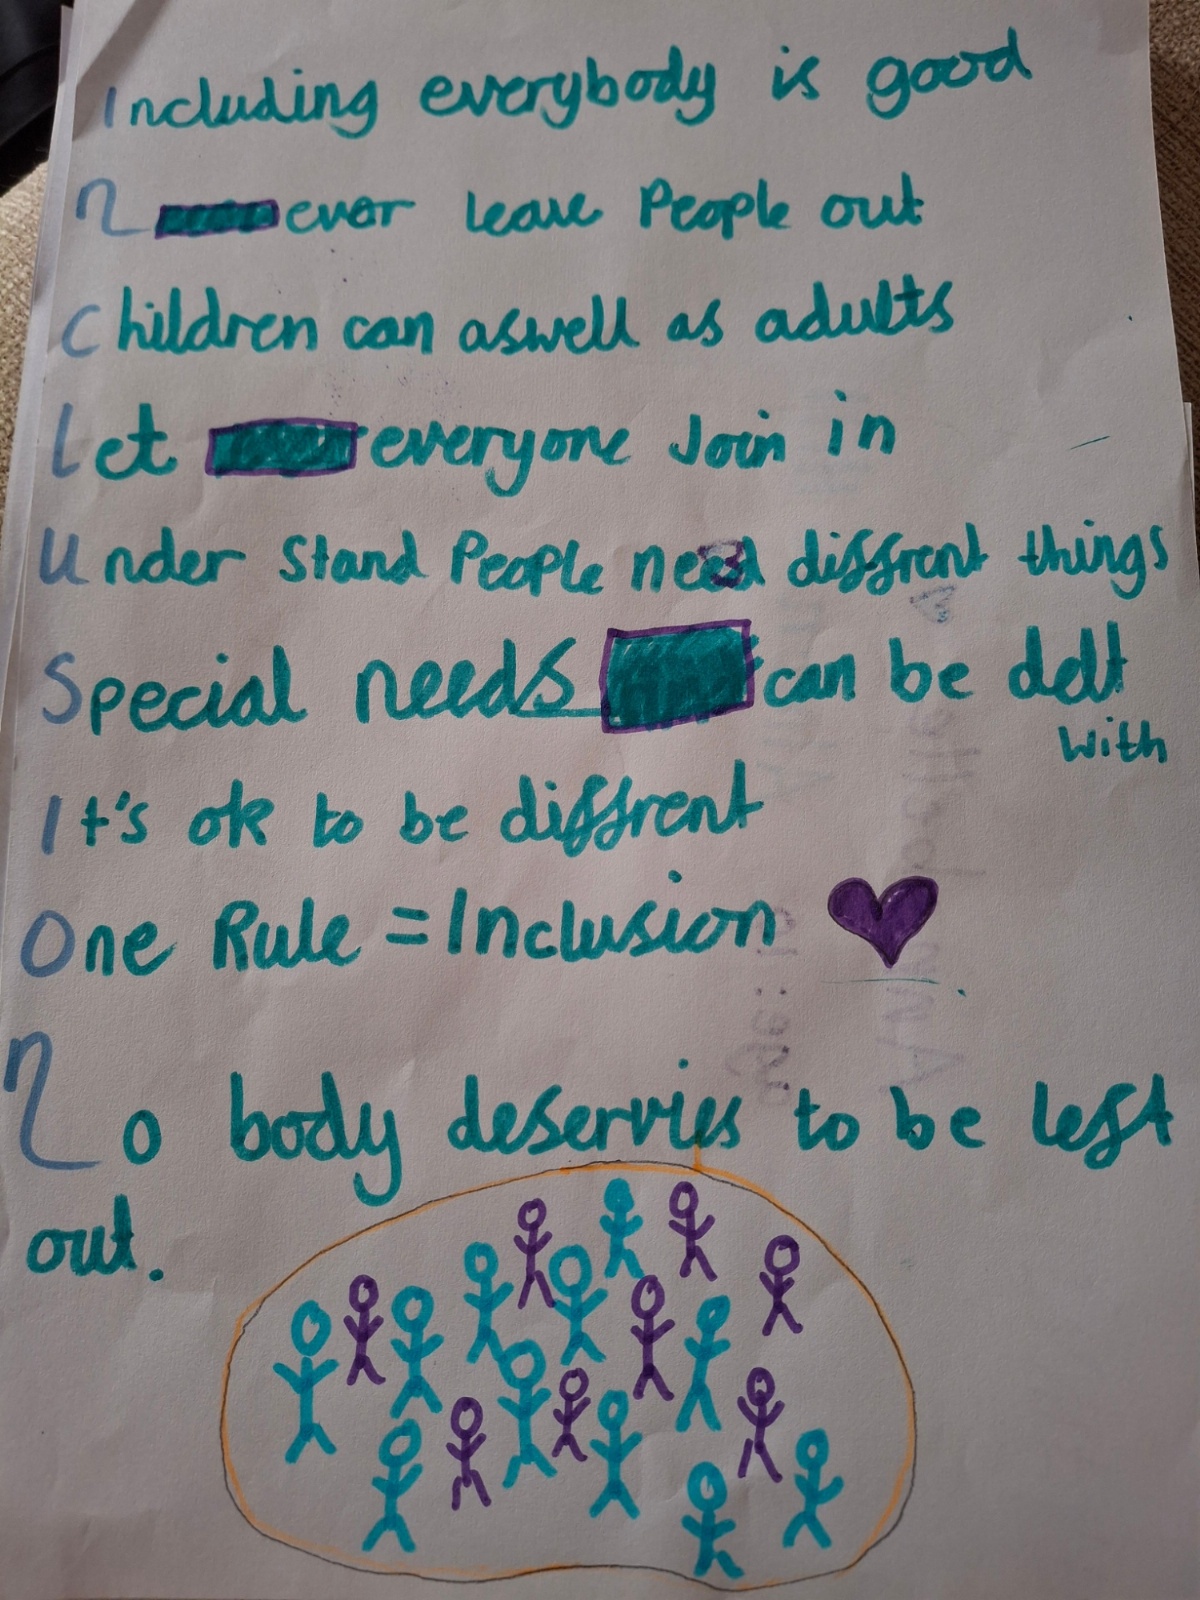 Including everybody is good
Never leave People out
Children can aswell as adults
Let everyone Join in
Under Stand People need diffrent things
Special needs can be delt
with
It's ok to be diffrent
One Rule = Inclusion
No body deservies to be left
out.